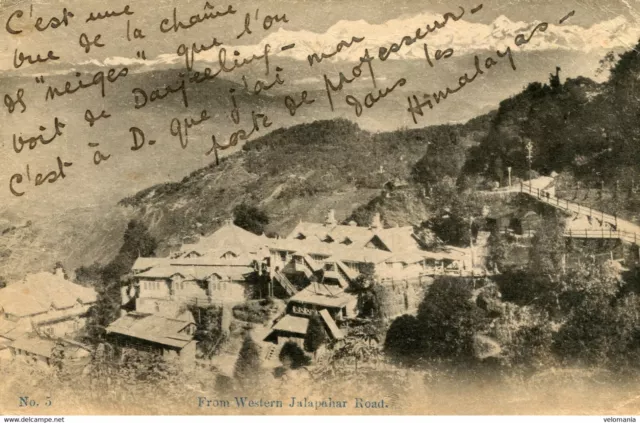 C'est une
vue de la chaîne
des "neiges" que l'on
voit de Darjeeling -
C'est à D. que j'ai mon
poste de professeur -
dans les
Himalayas -
No. 5
From Western Jalapahar Road.
www.delcampe.net
velomania